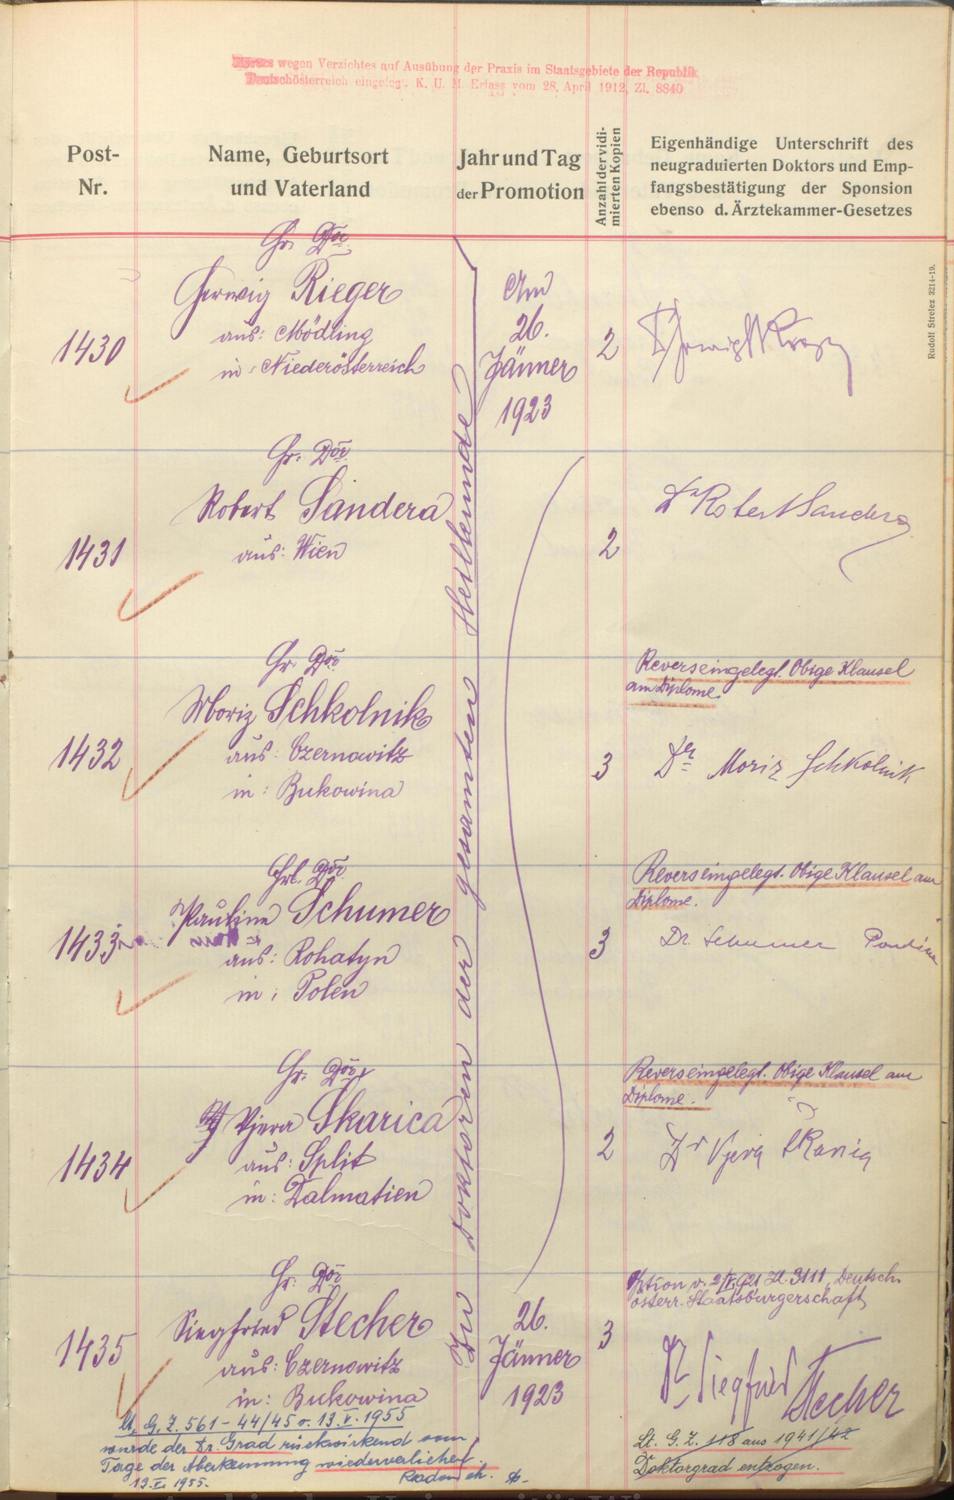 Revers wegen Verzichtes auf Ausübung der Praxis im Staatsgebiete der Republik
Deutschösterreich eingelegt. K. U. M. Erlass vom 28. April 1912, Zl. 8840
Post-
Nr.
Name, Geburtsort
und Vaterland
Jahr und Tag
der Promotion
Anzahl der vidi-
mierten Kopien
Eigenhändige Unterschrift des
neugraduierten Doktors und Emp-
fangsbestätigung der Sponsion
ebenso d. Ärztekammer-Gesetzes
Rudolf Strelez 3214-19.
Zu Doktoren der gesamten Heilkunde
1430
Hr. Dor.
Herwig Rieger
aus: Mödling
in: Niederösterreich
Am
26.
Jänner
1923
2
1431
Hr. Dor.
Robert Sandera
aus: Wien
2
Dr Robert Sandera
1432
Hr. Dor.
Moriz Schkolnik
aus: Czernowitz
in: Bukowina
3
Revers eingelegt. Obige Klausel
am Diplome.
Dr Moriz Schkolnik
1433
Frl. Dor.
Pauline Schumer
aus: Rohatyn
in: Polen
3
Revers eingelegt. Obige Klausel am
Diplome.
Dr. Schumer Paulina
1434
Hr. Dor.
Vjera Skarica
aus: Split
in: Dalmatien
2
Revers eingelegt. Obige Klausel am
Diplome.
Dr Vjera Skarica
1435
Hr. Dor.
Siegfried Stecher
aus: Czernowitz
in: Bukowina
26.
Jänner
1923
3
Option v. 921 Zl. 3111, Deutsch.
österr. Staatsbürgerschaft
Dr. Siegfried Stecher
Lt. G. Z. 561 - 44/45 v. 13. V. 1955
wurde der Dr. Grad rückwirkend vom
Tage der Aberkennung wiederverliehen.
13. V. 1955.
Lt. G. Z. 118 aus 1941/42
Doktorgrad entzogen.